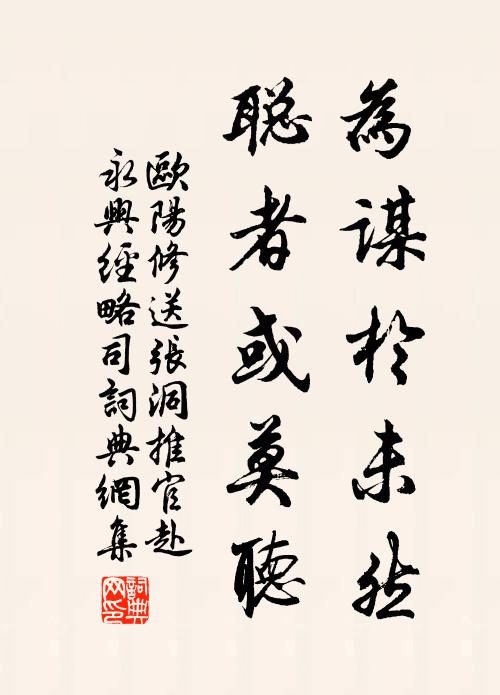 為謀於未然
聪者或莫聽
歐陽修送張洞推官赴
永興經略司詞典網集